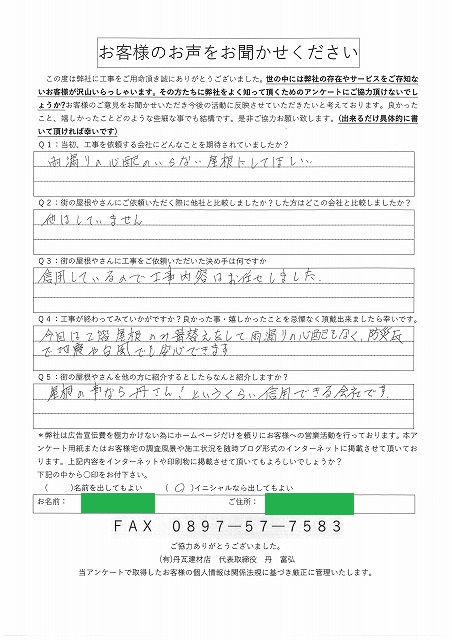 お客様のお声をお聞かせください
この度は弊社に工事をご用命頂き誠にありがとうございました。世の中には弊社の存在やサービスをご存知な
いお客様が沢山いらっしゃいます。その方たちに弊社をよく知って頂くためのアンケートにご協力頂けないで
しょうか?お客様のご意見をお聞かせいただき今後の活動に反映させていただきたいと考えております。良かった
こと、嬉しかったことどのような些細な事でも結構です。是非ご協力お願い致します。(出来るだけ具体的に書
いて頂ければ幸いです)
Q1:当初、工事を依頼する会社にどんなことを期待されていましたか?
雨漏りの心配のいらない屋根にしてほしい
Q2:街の屋根やさんにご依頼いただく際に他社と比較しましたか?した方はどこの会社と比較しましたか?
他はしていません
Q3:街の屋根やさんに工事をご依頼いただいた決め手は何ですか
信用しているので工事内容はお任せしました.
Q4:工事が終わってみていかがですか?良かった事・嬉しかったことを忌憚なく頂戴出来ましたら幸いです。
今回は2階屋根のみ葺替えをして雨漏りの心配もなく、防災瓦
で地震や台風でも安心できます
Q5:街の屋根やさんを他の方に紹介するとしたらなんと紹介しますか?
屋根の事なら丹さん!というくらい信用できる会社です.
*弊社は広告宣伝費を極力かけない為にホームページだけを頼りにお客様への営業活動を行っております。本ア
ンケート用紙またはお客様宅の調査風景や施工状況を随時ブログ形式のインターネットに掲載させて頂いてお
ります。上記内容をインターネットや印刷物に掲載させて頂いてもよろしいでしょうか?
下記の中から〇印をお付下さい。
( )名前を出してもよい (○)イニシャルなら出してもよい
お名前: ご住所:
FAX 0897―57―7583
ご協力ありがとうございました。
(有)丹瓦建材店 代表取締役 丹 富弘
当アンケートで取得したお客様の個人情報は関係法規に基づき厳正に管理いたします。